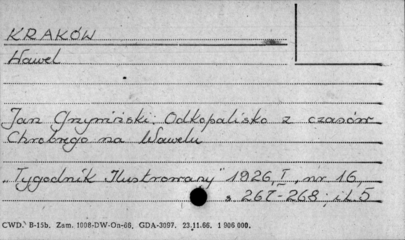 KRAKÓW
Wawel
Jan Grzymiński: Odkopalisko z czasów
Chrobrego na Wawelu
„Tygodnik Ilustrowany" 1926, I, nr 16,
s. 267-268; il. 5
CWD. B-15b. Zam. 1006-DW-On-66. GDA-3097. 23.11.66. 1 906 000.